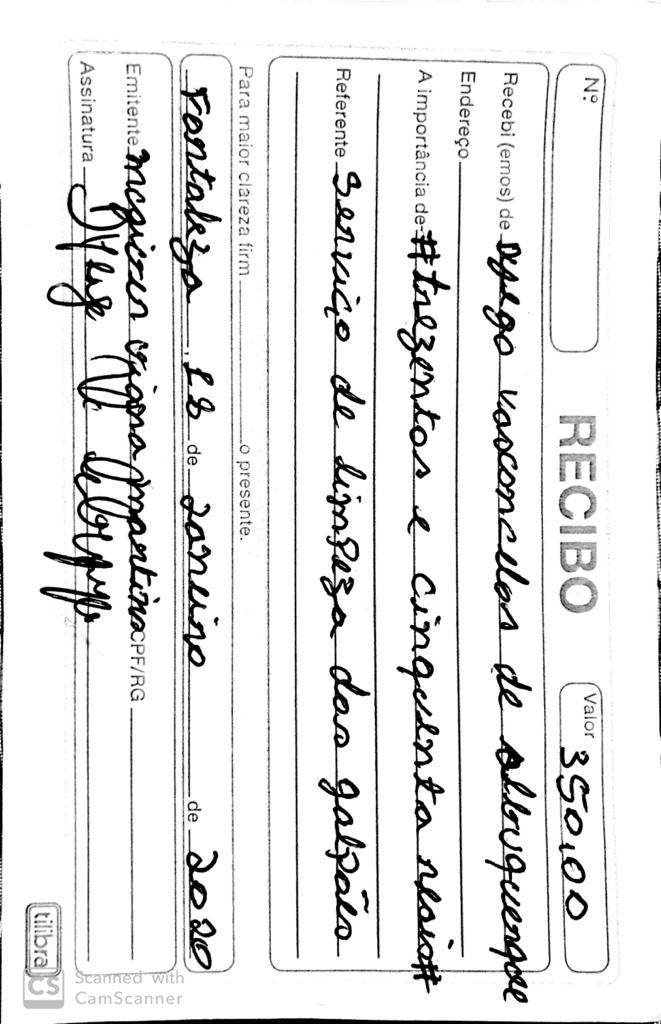 Nº RECIBO Valor 350,00
Recebi (emos) de Dyego vasconcelos de Albuquerque
Endereço
A importância de #trezentos e cinquenta reais#
Referente Serviço de limpeza dos galpão
Para maior clareza firm o presente.
Fortaleza , 18 de Janeiro de 2020
Emitente viana martins CPF/RG
Assinatura
tilibra
CS Scanned with
CamScanner